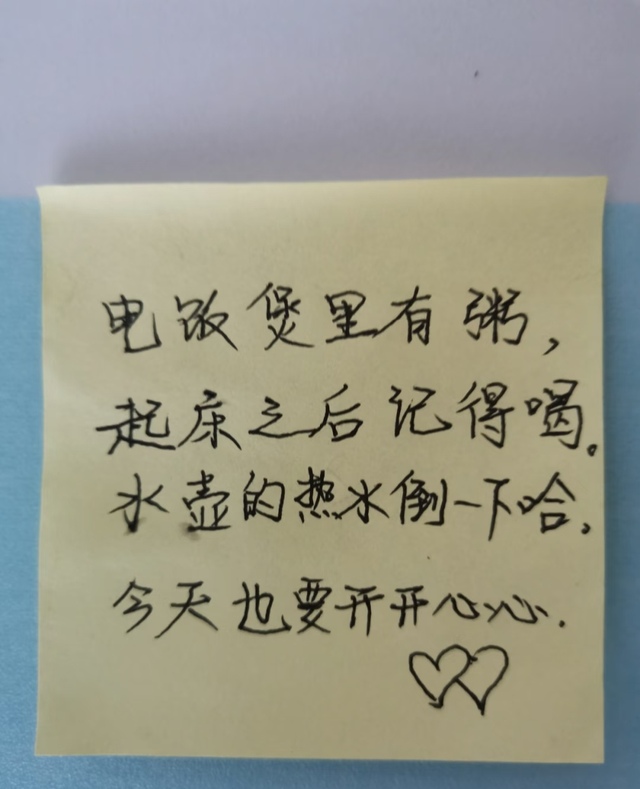 电饭煲里有粥,
起床之后记得喝。
水壶的热水倒一下哈。
今天也要开开心心.